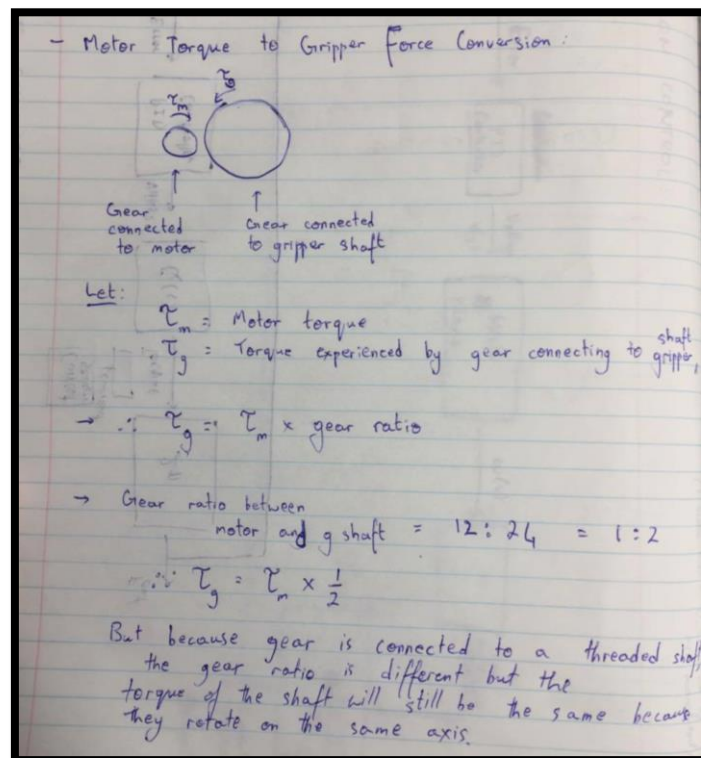 - Motor Torque to Gripper Force Conversion:
τm τg
Gear connected to motor
Gear connected to gripper shaft
Let:
τm = Motor torque
τg = Torque experienced by gear connecting to gripper shaft,
→ ∴ τg = τm × gear ratio
→ Gear ratio between
motor and g shaft = 12:24 = 1:2
∴ τg = τm × 1/2
But because gear is connected to a threaded shaft,
the gear ratio is different but the
torque of the shaft will still be the same because
they rotate on the same axis.